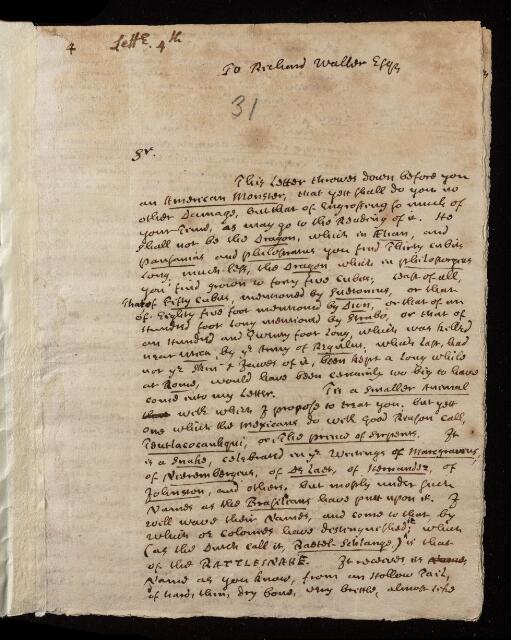 4 Lettr. 4th
To Richard Waller Esqr
31
Sr.
This Letter throwes down before you
an American Monster, that yett shall do you no
other Damage, but that of Engrossing so much of
your Time, as may go to the Reading of it. He
shall not be the Dragon, which in Elian, and
Pausanias and Philostratus you find Thirty cubits
Long, much less, the Dragon which in Philostorgius
you find grown to forty five cubits; Least of all,
That of Fifty Cubits, mentioned by Suetonius, or that
of Eighty five foot mentioned by Dion, or that of an
Hundred foot long mentioned by Strabo, or that of
an Hundred and Twenty foot long, which was killed
near Utica, by ye Army of Regulus, which last, had
not ye Skin & Jawes of it, been kept a long while
at Rome, would have been certainly too big to have
come into my Letter. Tis a smaller Animal
with which I propose to treat you, but yett
one which the Mexicans do with good Reason call,
Teutlacocauhqui, or The prince of Serpents. It
is a Snake, celebrated in ye Writings of Marcgravius,
of Nierembergius, of De Laet, of Hernandez, of
Johnston, and others, but mostly under such
Names as the Brasilians have putt upon it. I
will wave their Names, and come to that by
which or Colonies have distinguished it; which
(as the Dutch call it, Raetel-Schlange,) is that
of the RATTLESNAKE. It receives its
Name as you know, from an Hollow Tail,
of hard, thin, dry bone, very brittle, almost like